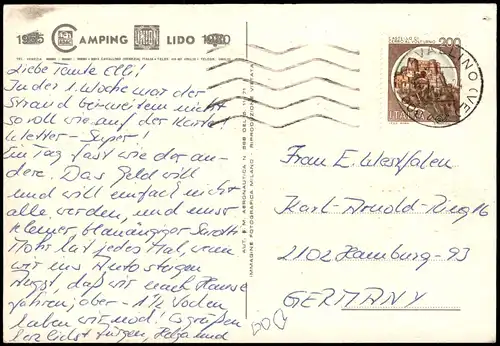 1955 CAMPING LIDO 1980
Liebe Tante Elli!
In der 1. Woche war der
Strand bei weitem nicht
so voll wie auf der Karte!
Wetter - Super!
Ein Tag fast wie der an-
dere. Das Geld will
und will einfach nicht
alle werden, und unser
kleiner, blauäugiger
Mohr hat jedes Mal, wenn
wir ins Auto steigen
Angst, daß wir nach Hause
fahren, aber - 1½ Wochen
haben wir noch! Es grüßen
herzlichst Jürgen, Helga und
AUT. S.M. AERONAUTICA N.
IMMAGINE FOTOGRAFICA MILANO - RIPRODUZIONE VIETATA
200
ITALIA
Frau E. Westfalen
Karl-Arnold-Ring 16
2102 Hamburg-93
GERMANY